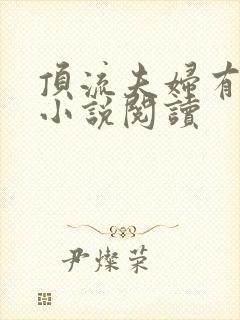 頂流夫婦有
小說閱讀
尹燦荣